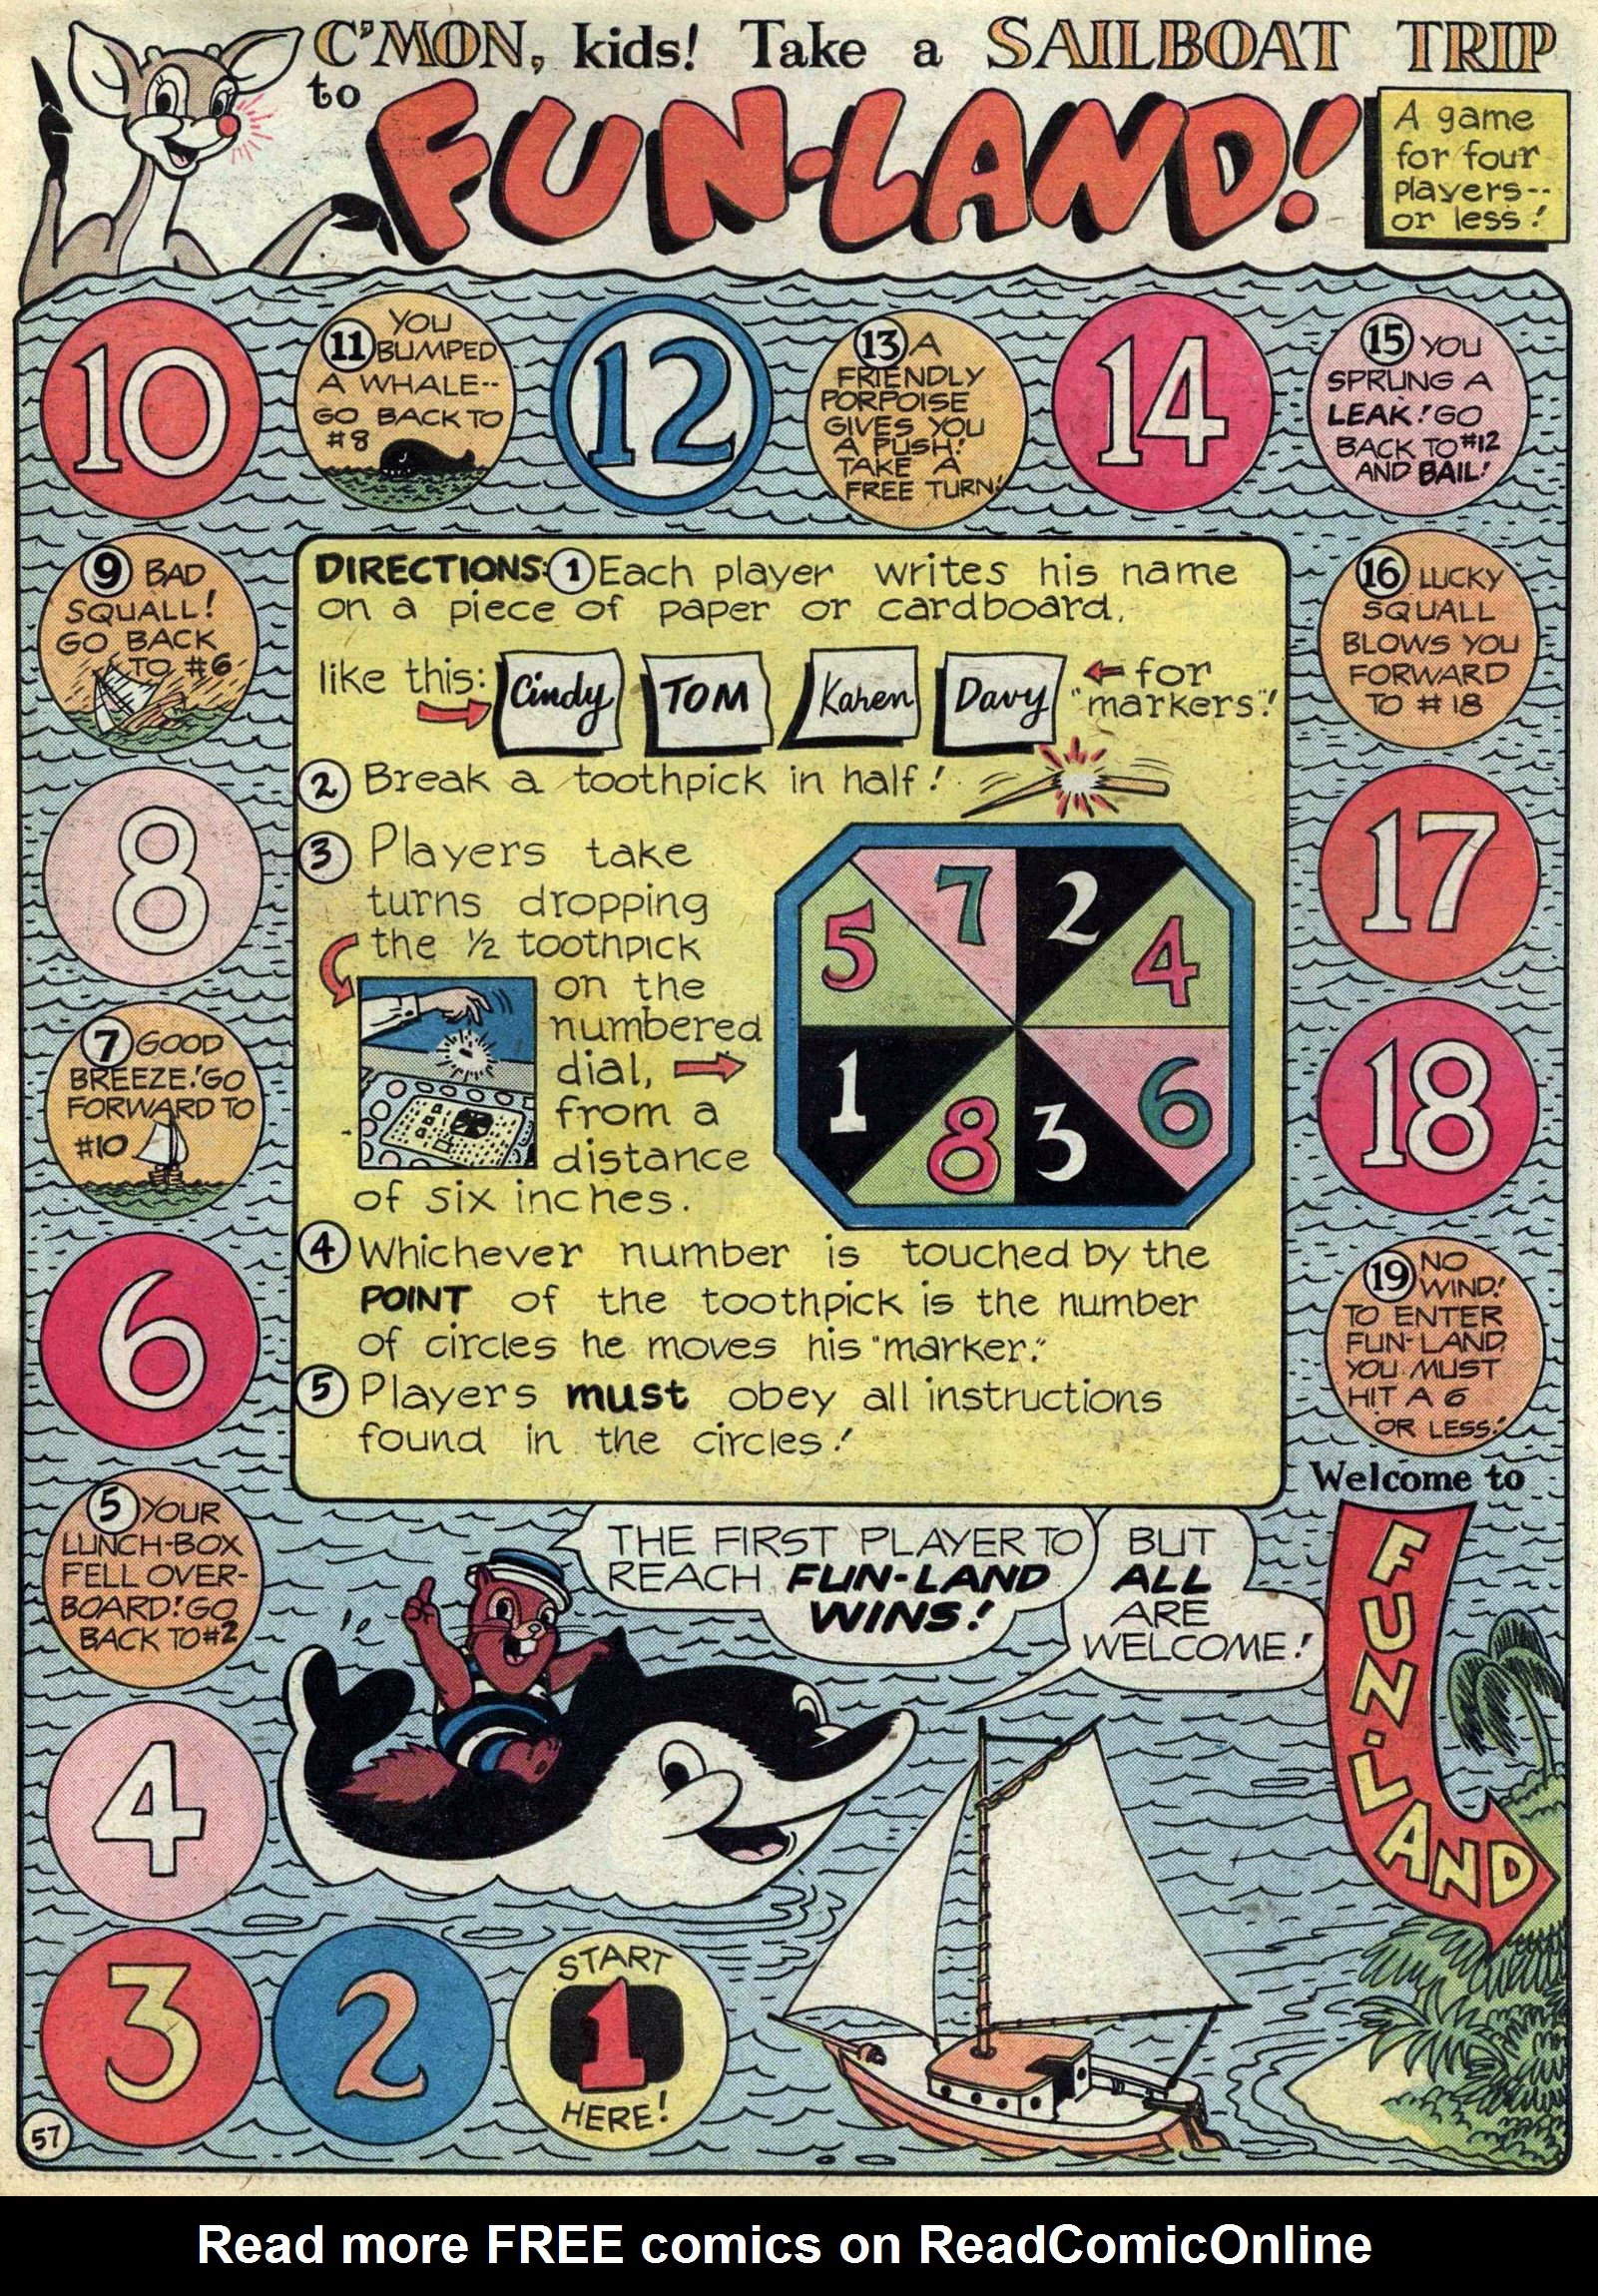 C'MON, kids! Take a SAILBOAT TRIP
to
FUN-LAND!
A game
for four
players--
or less!
10
11 YOU
BUMPED
A WHALE--
GO BACK TO
#8
12
13 A
FRIENDLY
PORPOISE
GIVES YOU
A PUSH!
TAKE A
FREE TURN!
14
15 YOU
SPRUNG A
LEAK! GO
BACK TO #12
AND BAIL!
9 BAD
SQUALL!
GO BACK
TO #6
8
7 GOOD
BREEZE! GO
FORWARD TO
#10
6
5 YOUR
LUNCH-BOX
FELL OVER-
BOARD! GO
BACK TO #2
4
3
2
START
1
HERE!
DIRECTIONS: 1 Each player writes his name
on a piece of paper or cardboard,
like this:
Cindy
TOM
Karen
Davy
for
"markers"!
2 Break a toothpick in half!
3 Players take
turns dropping
the ½ toothpick
on the
numbered
dial,
from a
distance
of six inches.
5
7
2
4
1
8
3
6
4 Whichever number is touched by the
POINT of the toothpick is the number
of circles he moves his "marker."
5 Players must obey all instructions
found in the circles!
16 LUCKY
SQUALL
BLOWS YOU
FORWARD
TO #18
17
18
19 NO
WIND!
TO ENTER
FUN-LAND,
YOU MUST
HIT A 6
OR LESS!
Welcome to
FUN-LAND
THE FIRST PLAYER TO
REACH FUN-LAND
WINS!
BUT
ALL
ARE
WELCOME!
57
Read more FREE comics on ReadComicOnline